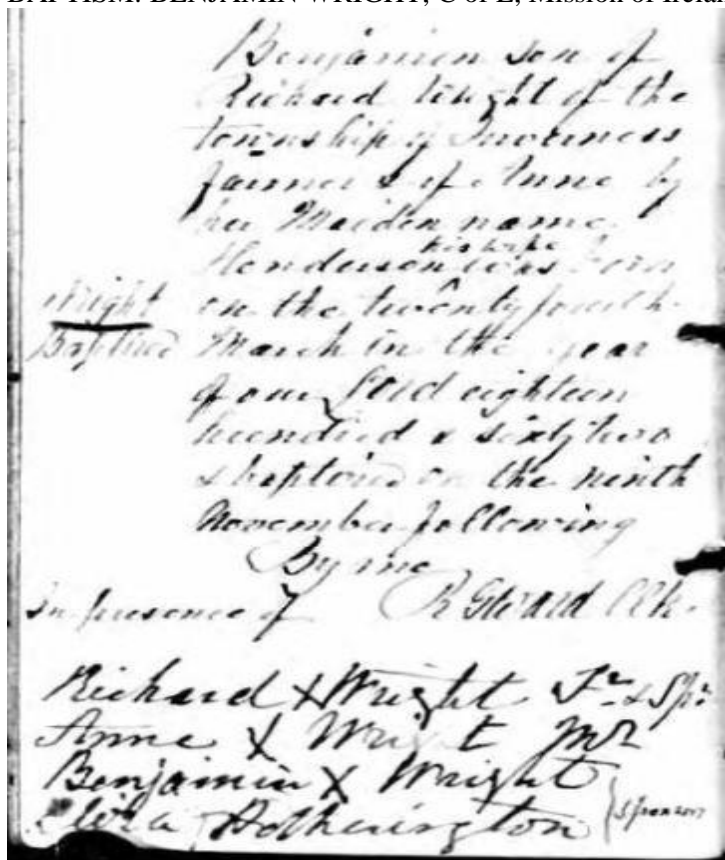 BAPTISM: BENJAMIN WRIGHT, C of E, Mission of Irelan
Benjamin son of
Richard Wright of the
township of Inverness
farmer & of Anne by
her Maiden name
his wife
Henderson was born
on the twenty fourth
Wright
Baptized
March in the year
of our Lord eighteen
hundred & sixty two
& baptized on the ninth
November following
By me
In presence of R G Ward Clk.
Richard X Wright Fr & Spr
Anne X Wright Mr
Benjamin X Wright
Eliza Hetherington
Sponsors